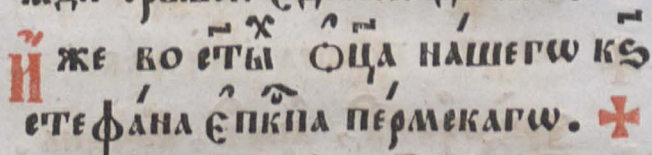 И҆́же во ст҃ы́хъ Ѻ҆ц҃а на́шегѡ к҃ѕ
стефа́на є҆пⷭ҇кпа пе́рмскагѡ. ✠